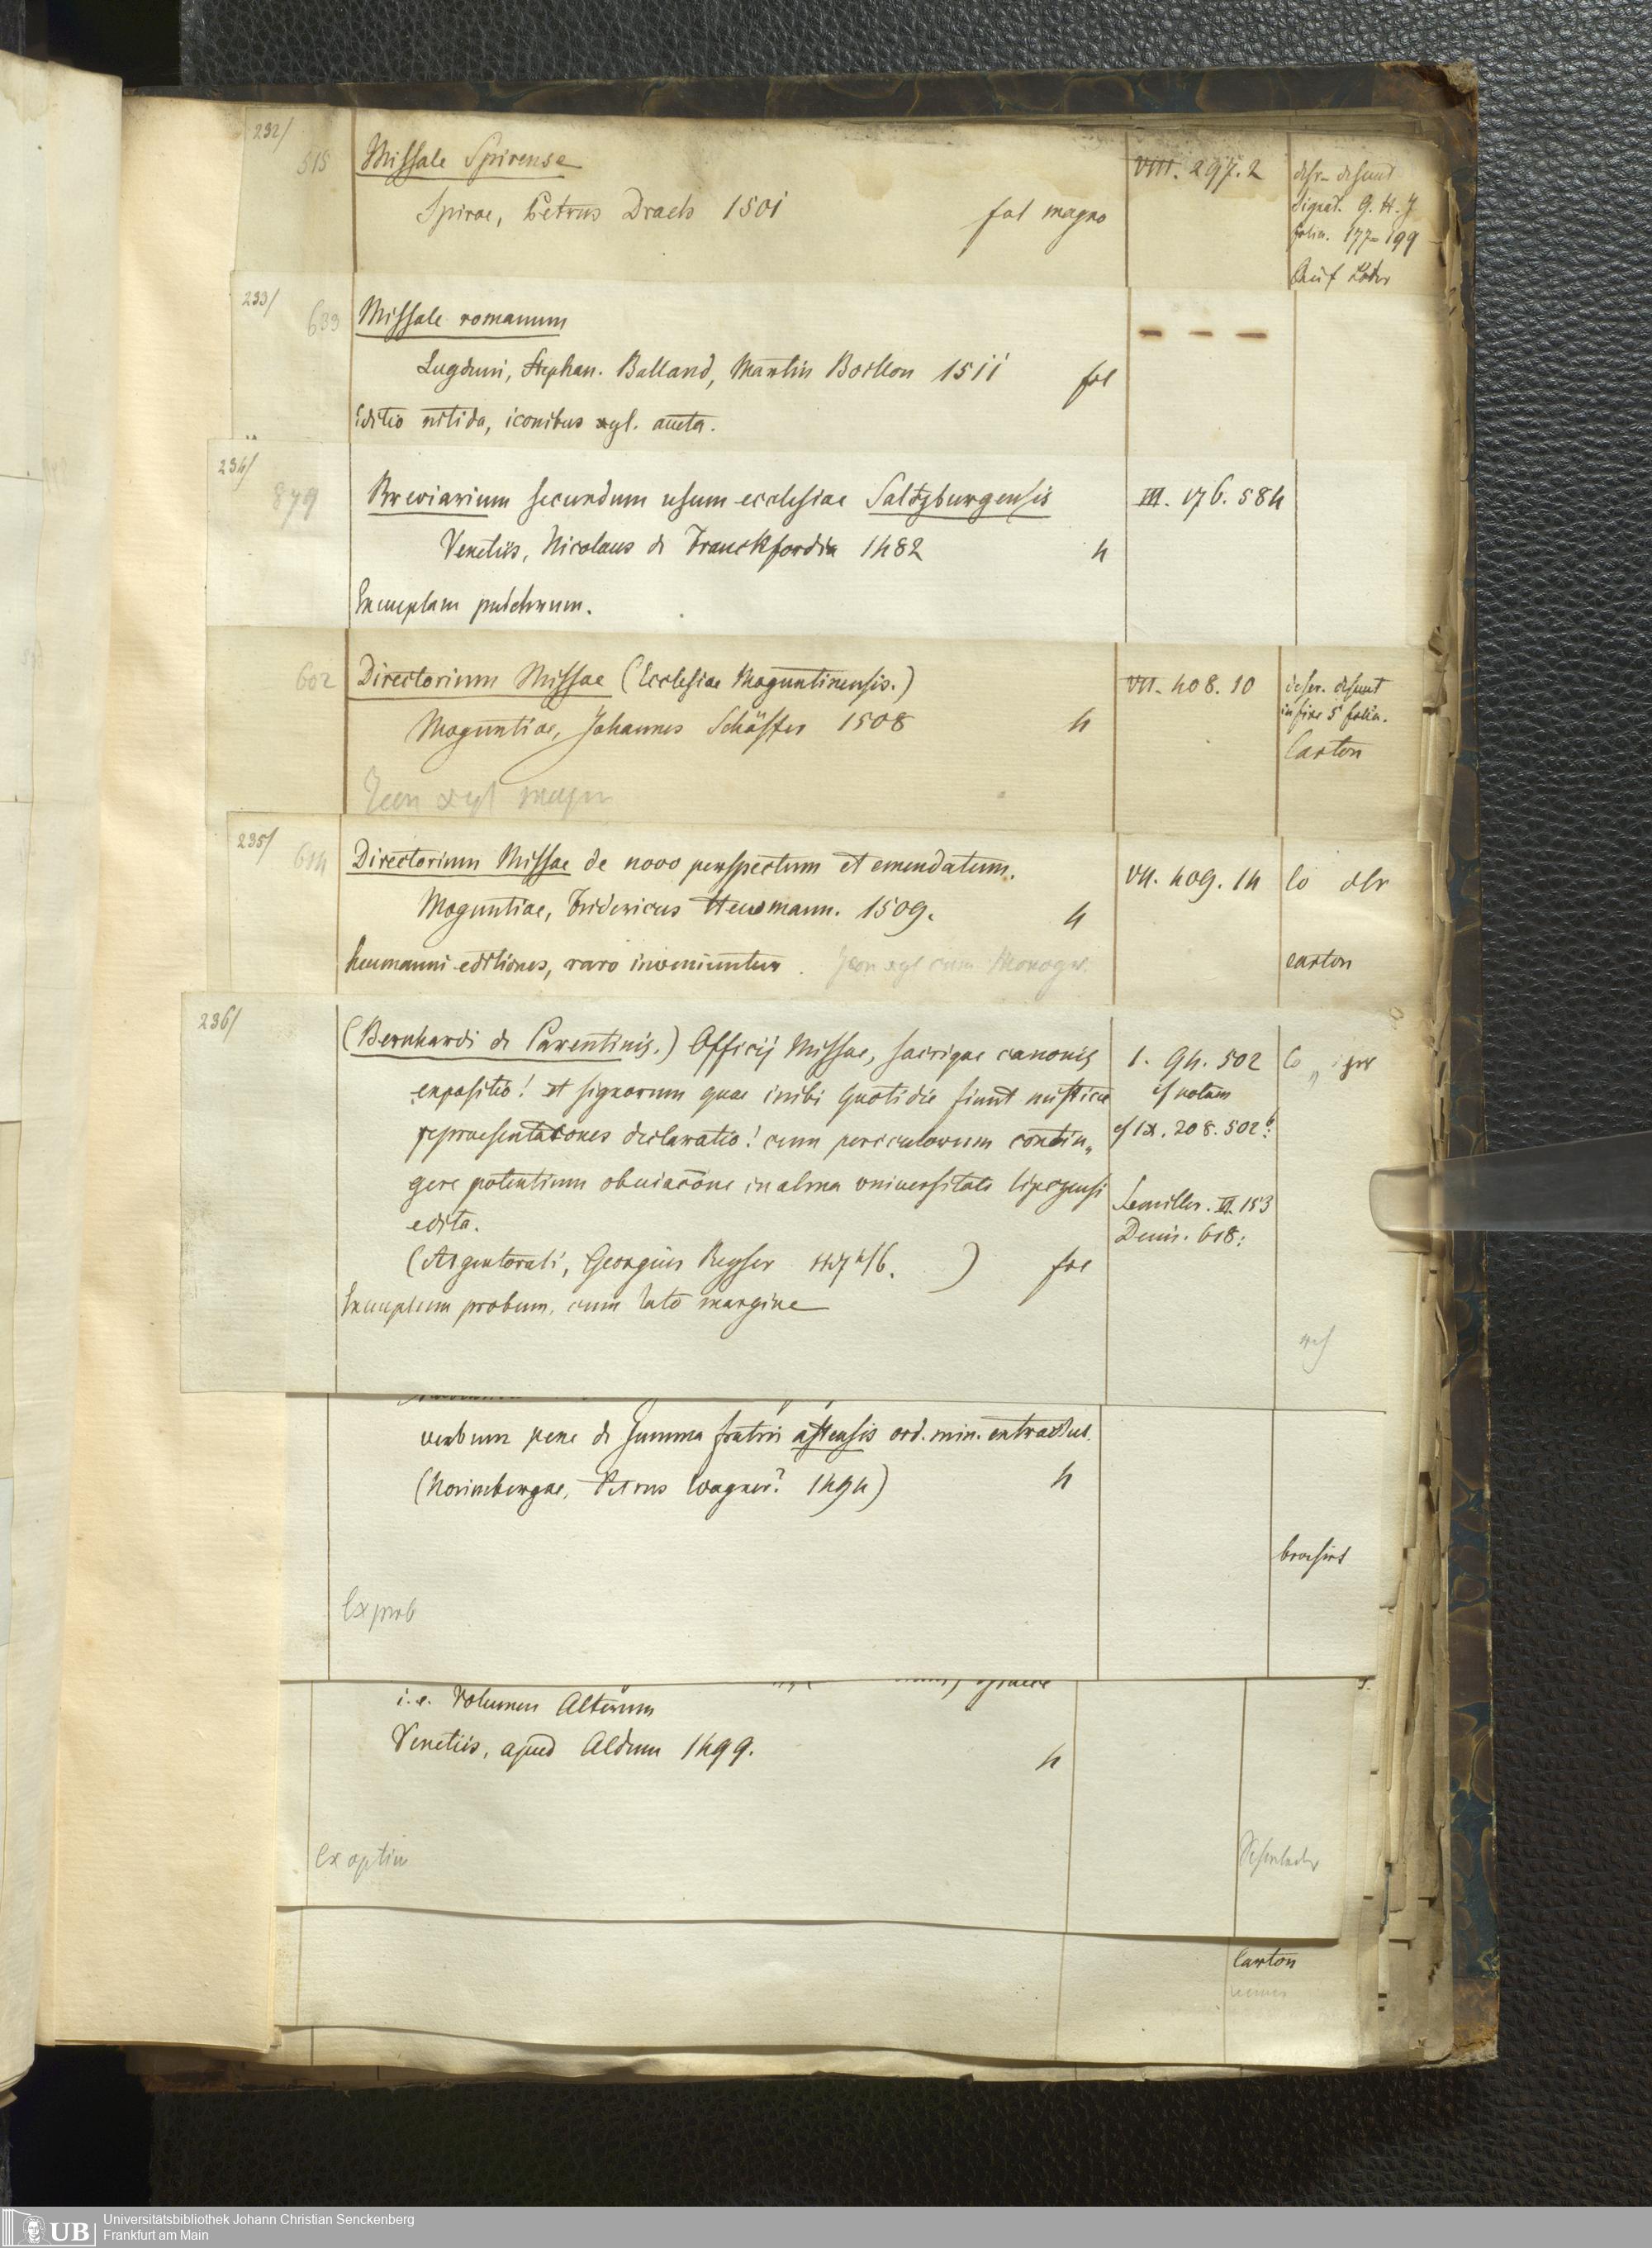 232/
515 Missale Spirense VIII. 297. 2 defr. desunt
Spirae, Petrus Drach 1501 fol magno Signat. G. H. J
folia. 177-199
233/
633 Missale romanum - - -
Lugduni, Stephan. Balland, Martin Boillon 1511 fol
Editio nitida, iconibus xyl. aucta.
234/
879 Breviarium secundum usum ecclesiae Saltzburgensis III. 176. 584
Venetiis, Nicolaus de Franckfordia 1482 4
Exemplum pulchrum.
602 Directorium Missae (Ecclesiae Moguntinensis.) VII. 408. 10 desunt
Moguntiae, Johannes Schöffer 1508 4 in fine 5 folia.
Carton
Icon xyl magn
235/
614 Directorium Missae de novo perspectum et emendatum. VII. 409. 14 Co
Moguntiae, Fridericus Heumann. 1509. 4
heumanni editiones, raro inveniuntur. Icon xyl cum Monogr. carton
236/
(Bernhardi de Parentinis.) Officij Missae, sacrique canonis 1. 94. 502 Co
expositio! et signorum quae inibi quotidie fiunt misticae cf notam
repraesentationes declaratio! cum periculorum contin„ cf IX. 208. 502b:
gere potentium obuiacõne in alma vniuersitate lipczensi
edita. Semiller. II. 153
Denis. 618:
(Argentorati, Georgius Reyser ) fol
Exemplum probum, cum lato margine
verbum pene de summa fratris astensis ord. min. extractus.
(Norimbergae, Petrus Wagner? 1494) 4
brochirt
Ex prob
i. e. Volumen Alterum
Venetiis, apud Aldum 1499. 4
Ex optim
Carton
UB Universitätsbibliothek Johann Christian Senckenberg
Frankfurt am Main